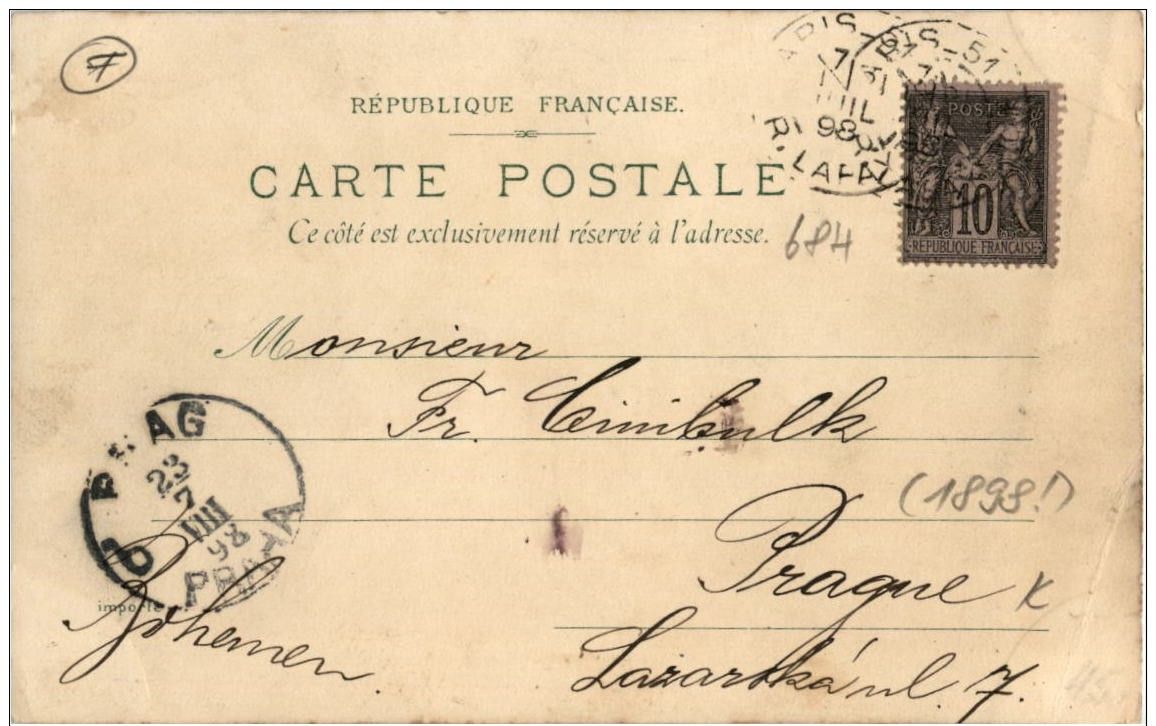 RÉPUBLIQUE FRANÇAISE.
CARTE POSTALE
Ce côté est exclusivement réservé à l'adresse.
PARIS-51
7
JUIL
98
R. LAFA
POSTE
10
REPUBLIQUE FRANÇAISE
684
Monsieur
Fr. Cimbulk
(1898!)
Prague
K
Lazarská ul 7.
45
PRAG
23
7
VIII
98
PRAHA
importé
Böhemen.